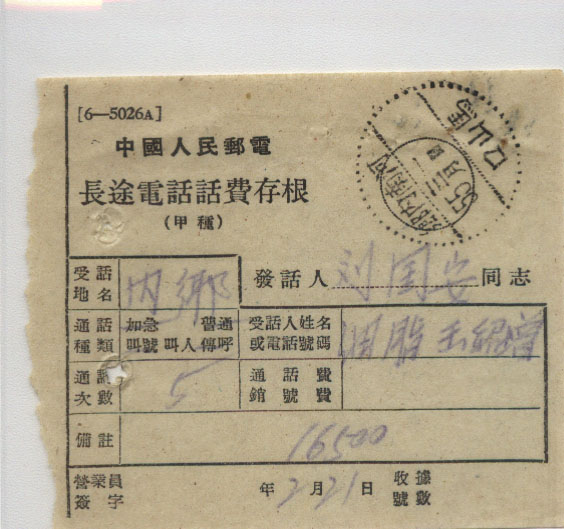 [6—5026A]
中國人民郵電
長途電話話費存根
(甲種)
馬山口
河南內鄉
受話地名
内鄉
發話人 刘国安 同志
通話種類
加急 普通
叫號 叫人傳呼
受話人姓名
或電話號碼
通話次數
5
通話費
銷號費
備註
16500
營業員簽字
年 2 月 21 日
收據號數